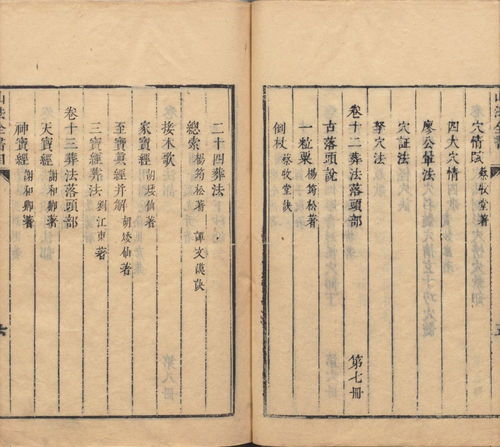 穴情賦 蔡牧堂著
四大穴情
廖公暈法
穴証法
穴法
卷十二葬法落頭部 第七冊
古落頭說
一粒粟 楊筠松著
倒杖 蔡牧堂訣
二十四葬法
總索 楊筠松著 譚文謨訣
接木歌
家寶經 胡矮仙著
至寶眞經并解 胡矮仙著
三寶經葬法 劉江東著
卷十三葬法落頭部
天寶經 謝和卿著
神寶經 謝和卿著